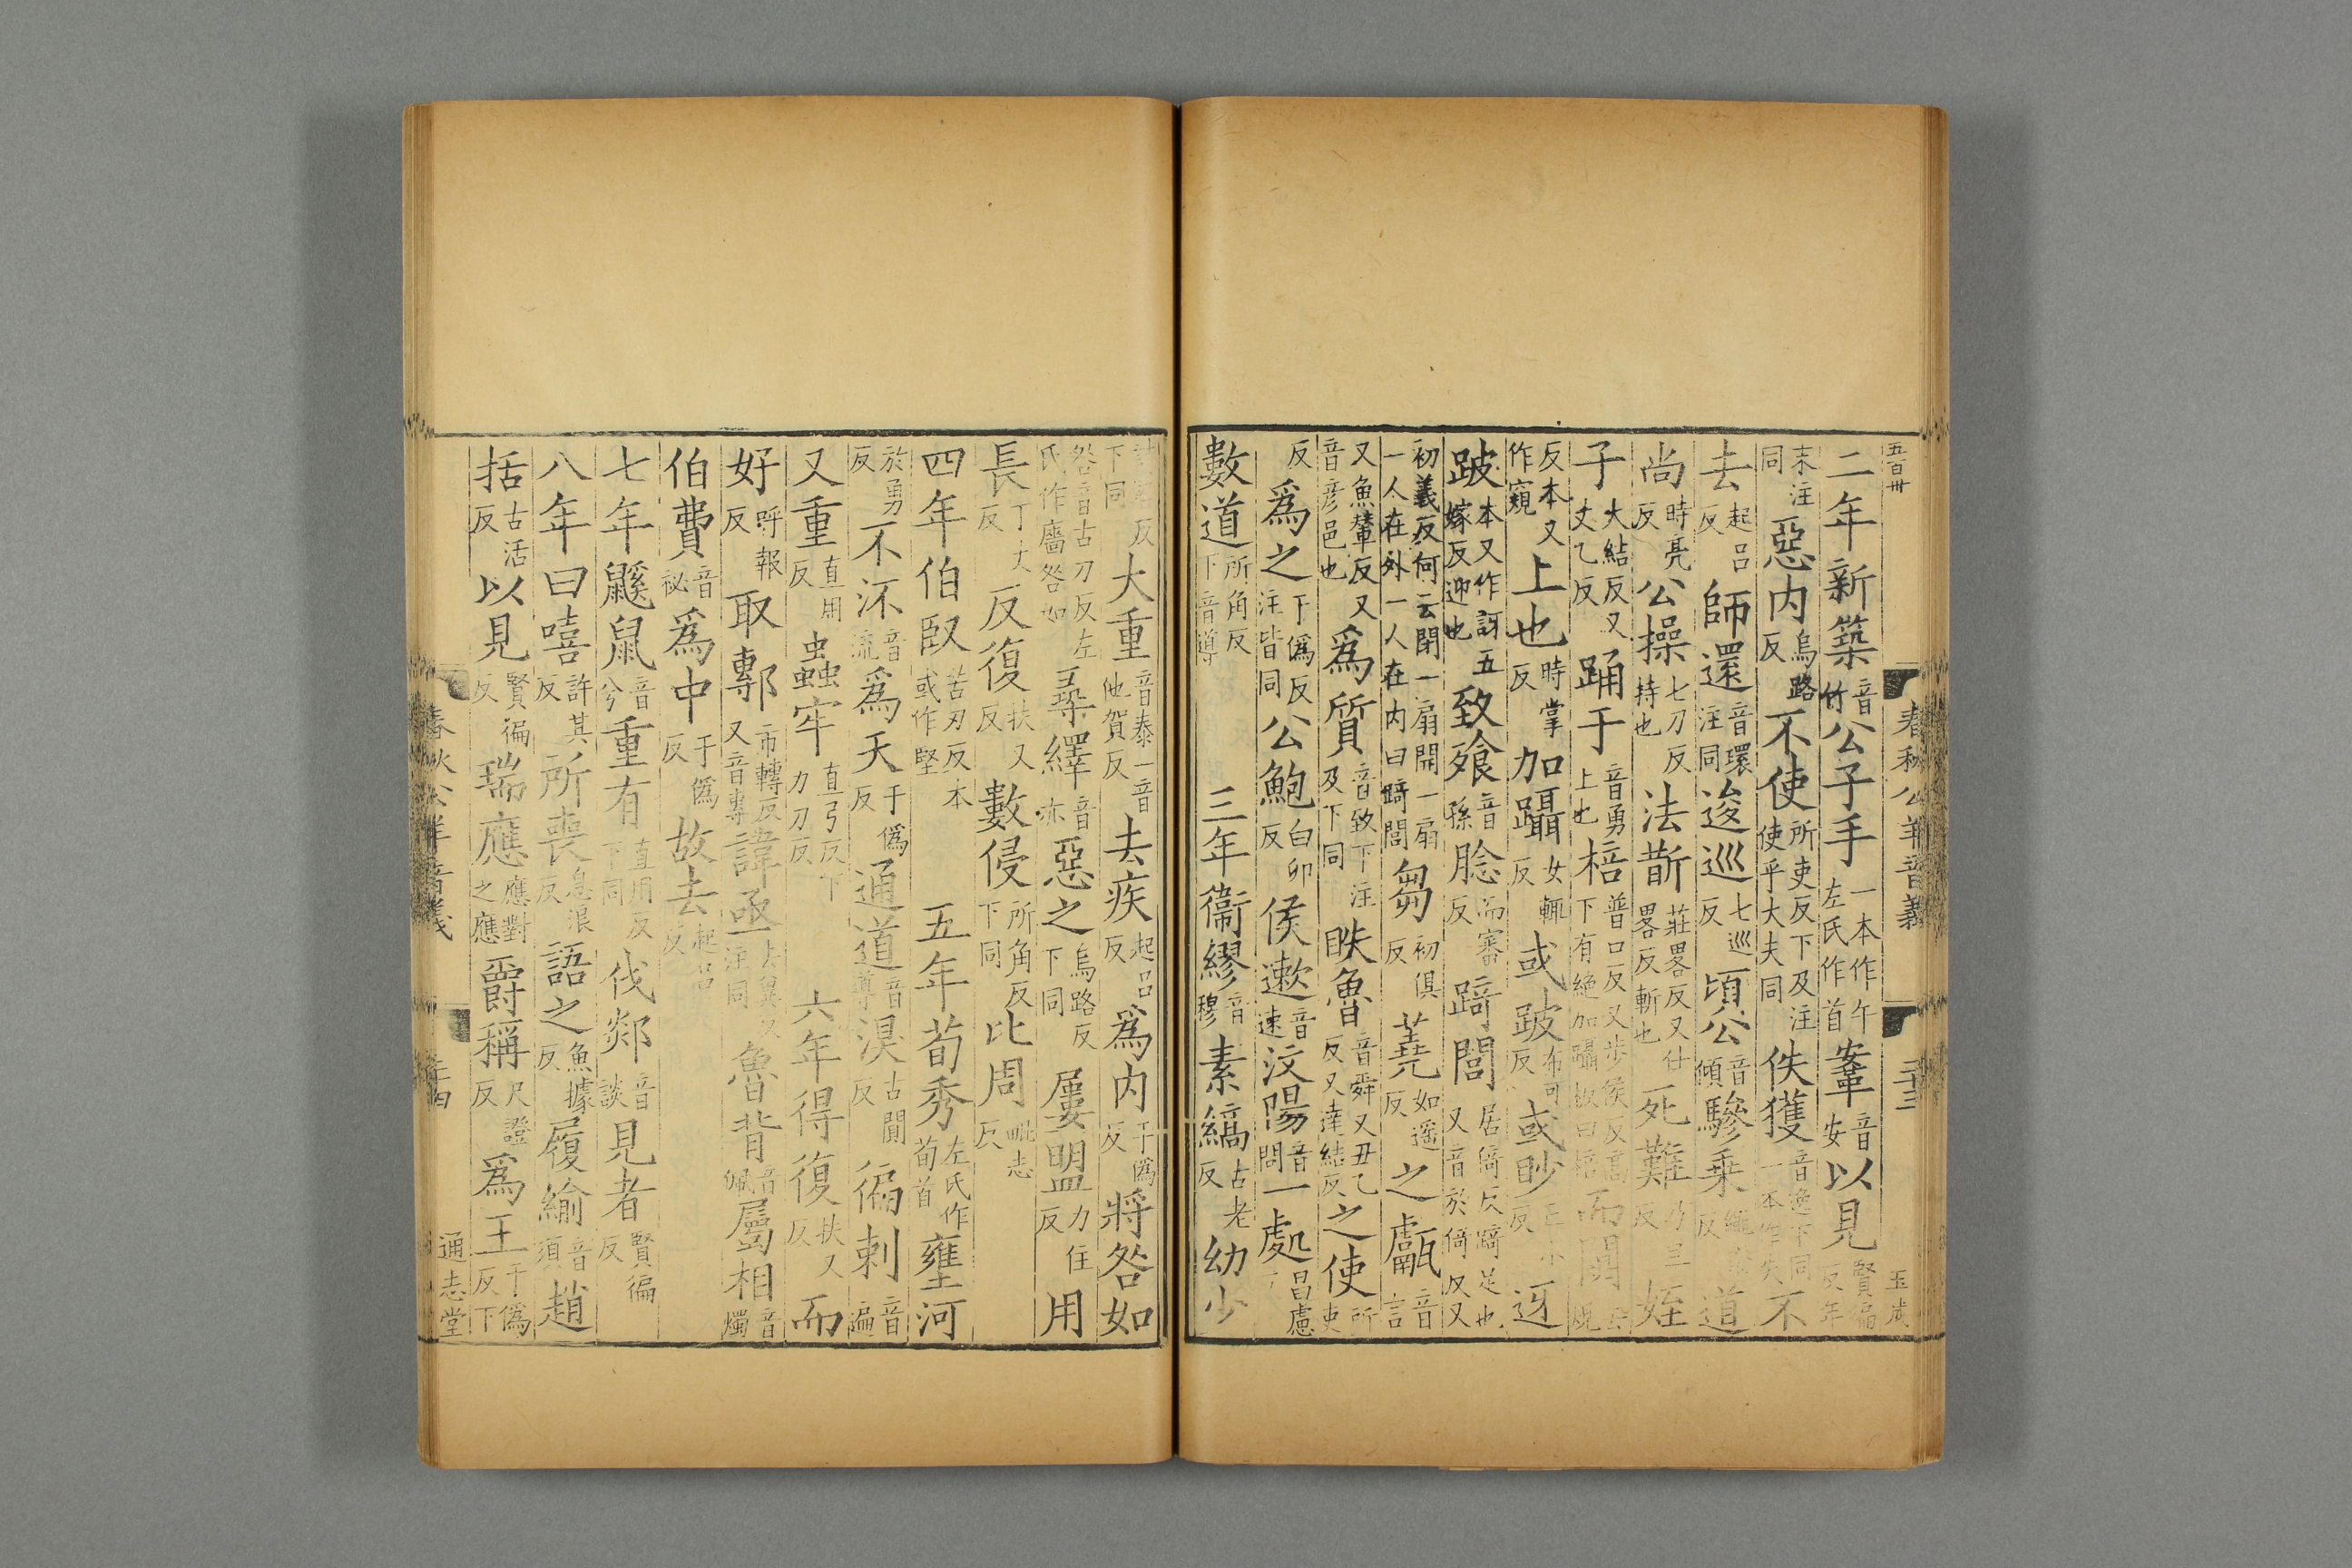 五百卅
春秋公羊音義 二十三 玉成
二年新築音竹公子手一本作午左氏作首鞌音安以見賢徧反年
末注同惡內烏路反不使所吏反下及注使乎大夫同佚獲音逸下同一本作失不
去起呂反師還音環注同逡巡七巡反頃公音傾驂乗繩反道
尚時亮反公操七刀反持也法斮莊畧反又仕畧反斬也死難乃旦反姪
子大結反又丈乙反踊于音勇上也棓普口反又步侯反高下有絶加躡板曰棓而闚去䂓
反本又作窺上也時掌反加躡女輒反或跛布可反或眇亡小反迓
跛本又作訝五嫁反迎也致飱音孫腍而審反踦閭居倚反踦足也又音於倚反又
初義反何云閉一扇開一扇一人在外一人在內曰踦閭芻初俱反蕘如遥反之甗音言
又魚輦反又音彦邑也爲質音致下注及下同眣魯音舜又丑乙反又達結反之使所吏
反爲之于僞反下注皆同公鮑白卯反侯遬音速汶陽音問一處昌慮
數道所角反下音導三年衞繆音穆素縞古老反幼少
反下同大重音泰一音他賀反去疾起呂反爲內于僞反將咎如
咎音古刀反左氏作廧咎如㝷繹音亦惡之烏路反下同屢盟力住反用
長丁丈反反復扶又反數侵所角反下同比周毗志反
四年伯臤苦刃反本或作堅五年荀秀左氏作荀首壅河
於勇反不泝音流爲天于僞反通道音導湨古闃反徧刺音遍
又重直用反蟲牢直弓反下力刀反六年得復扶又反而
好呼報反取鄟市轉反又音專諱亟去冀反注同魯背音佩屬相音燭
伯費音祕爲中于僞反故去起呂反
七年鼷鼠音兮重有直用反下同伐郯音談見者賢徧反
八年曰嘻許其反所喪息浪反語之魚據反履緰音須趙
括古活反以見賢徧反瑞應應對之應爵稱尺證反爲王于僞反下
春秋公羊音義 二十四 通志堂